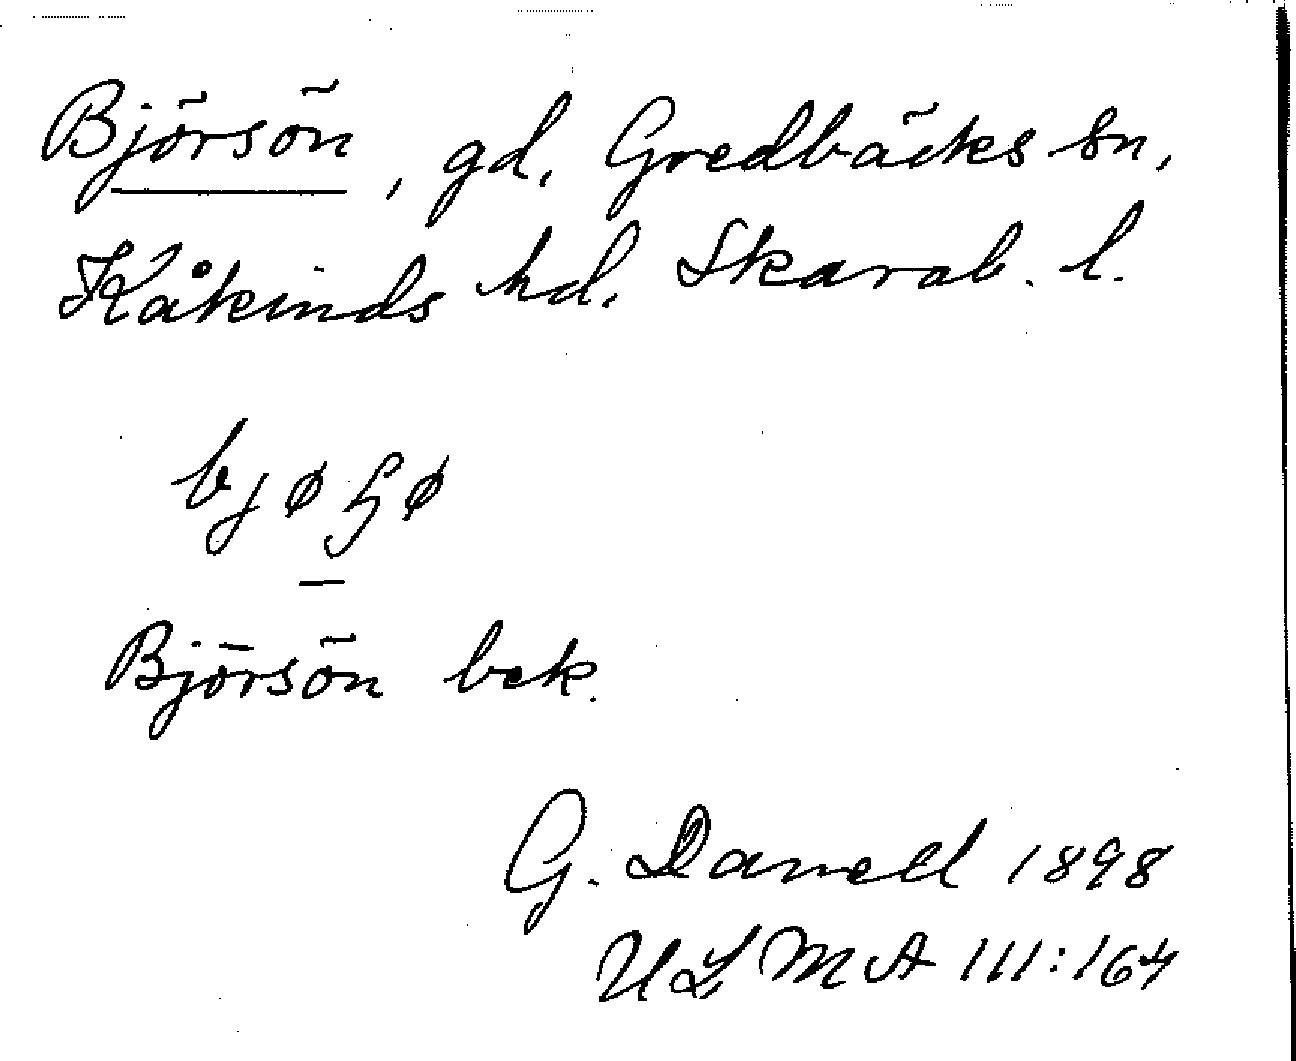 Björsön, gd. Gredbäcks sn,
Kåkinds hd. Skarab. l.
Björsön bek.
G. Danell 1898
ULMA 111:164